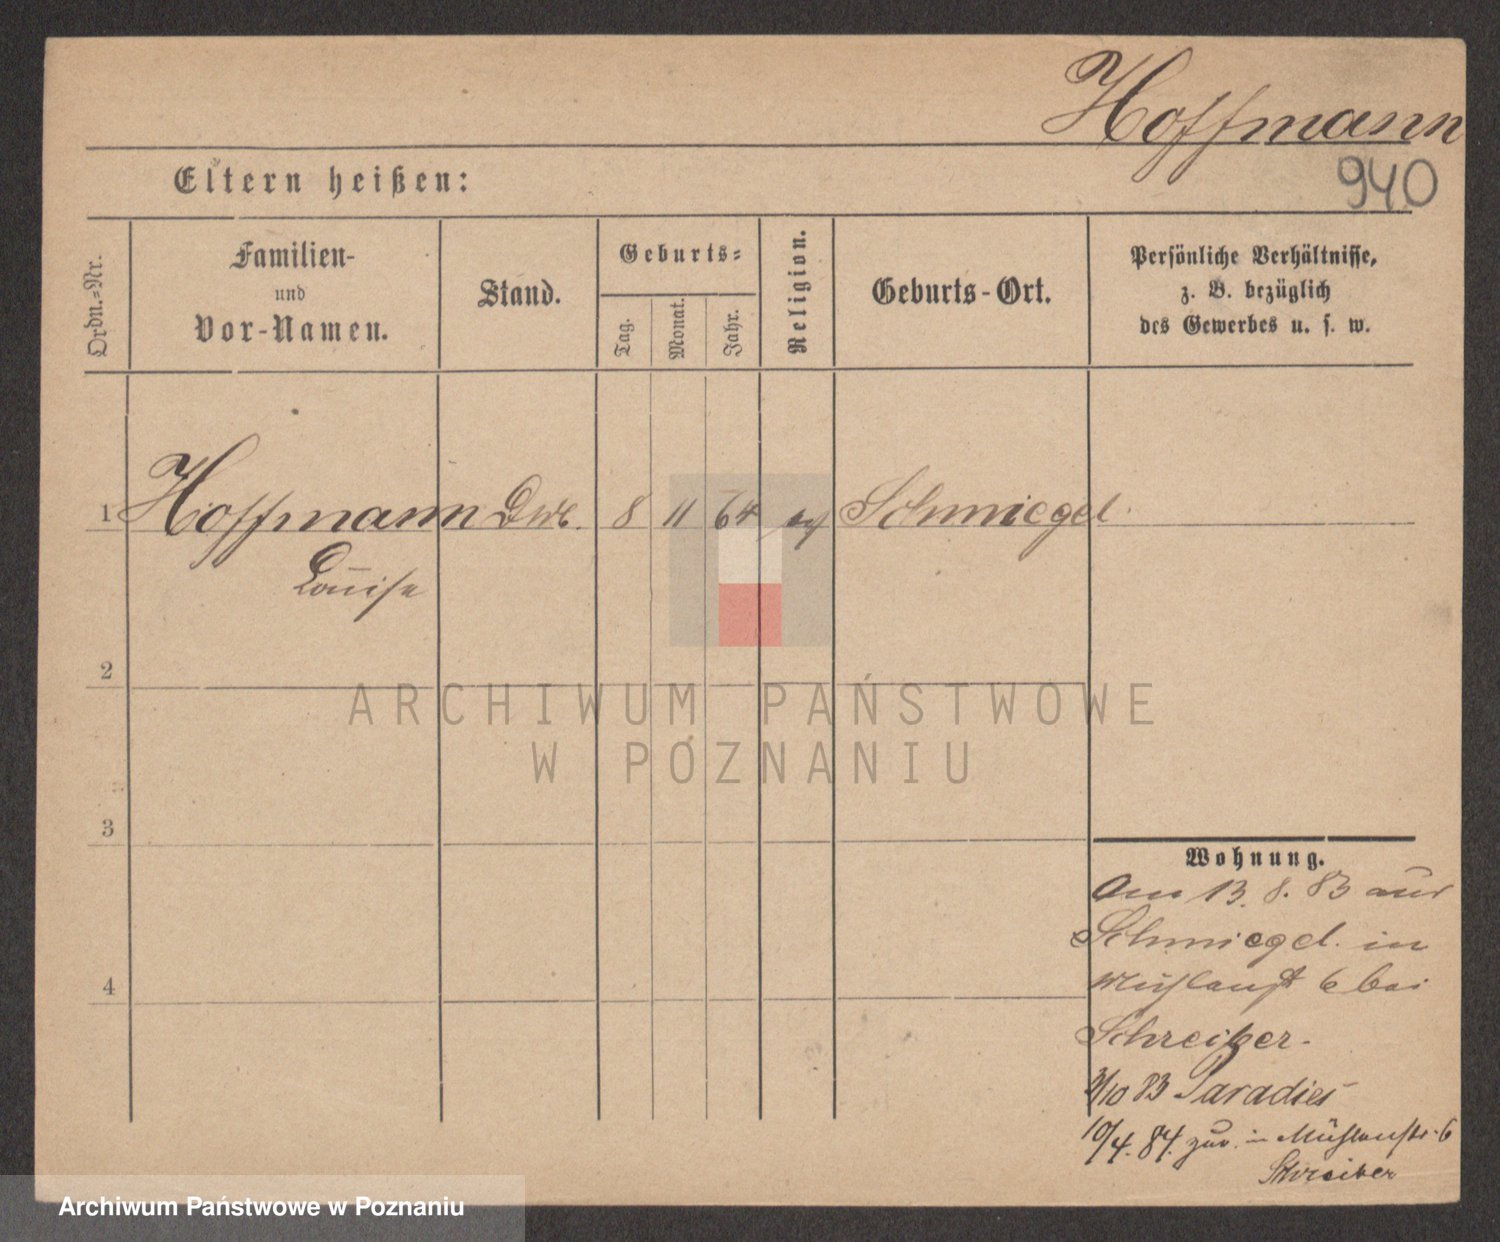 Hoffmann
940
Eltern heißen:
Ordn.=Nr.
Familien-
und
Vor-Namen.
Stand.
Geburts=
Tag.
Monat.
Jahr.
Religion.
Geburts-Ort.
Persönliche Verhältnisse,
z. B. bezüglich
des Gewerbes u. s. w.
1 Hoffmann 8 11 64 Schmiegel
Louise
2
ARCHIWUM PAŃSTWOWE
W POZNANIU
3
Wohnung.
Am 13. 8. 83 aus
Schmiegel. in
6 bei
4
Schreiber.
3/10 83 Paradies
10/4. 84. zur. in Mühlenstr. 6
Schreiber
Archiwum Państwowe w Poznaniu